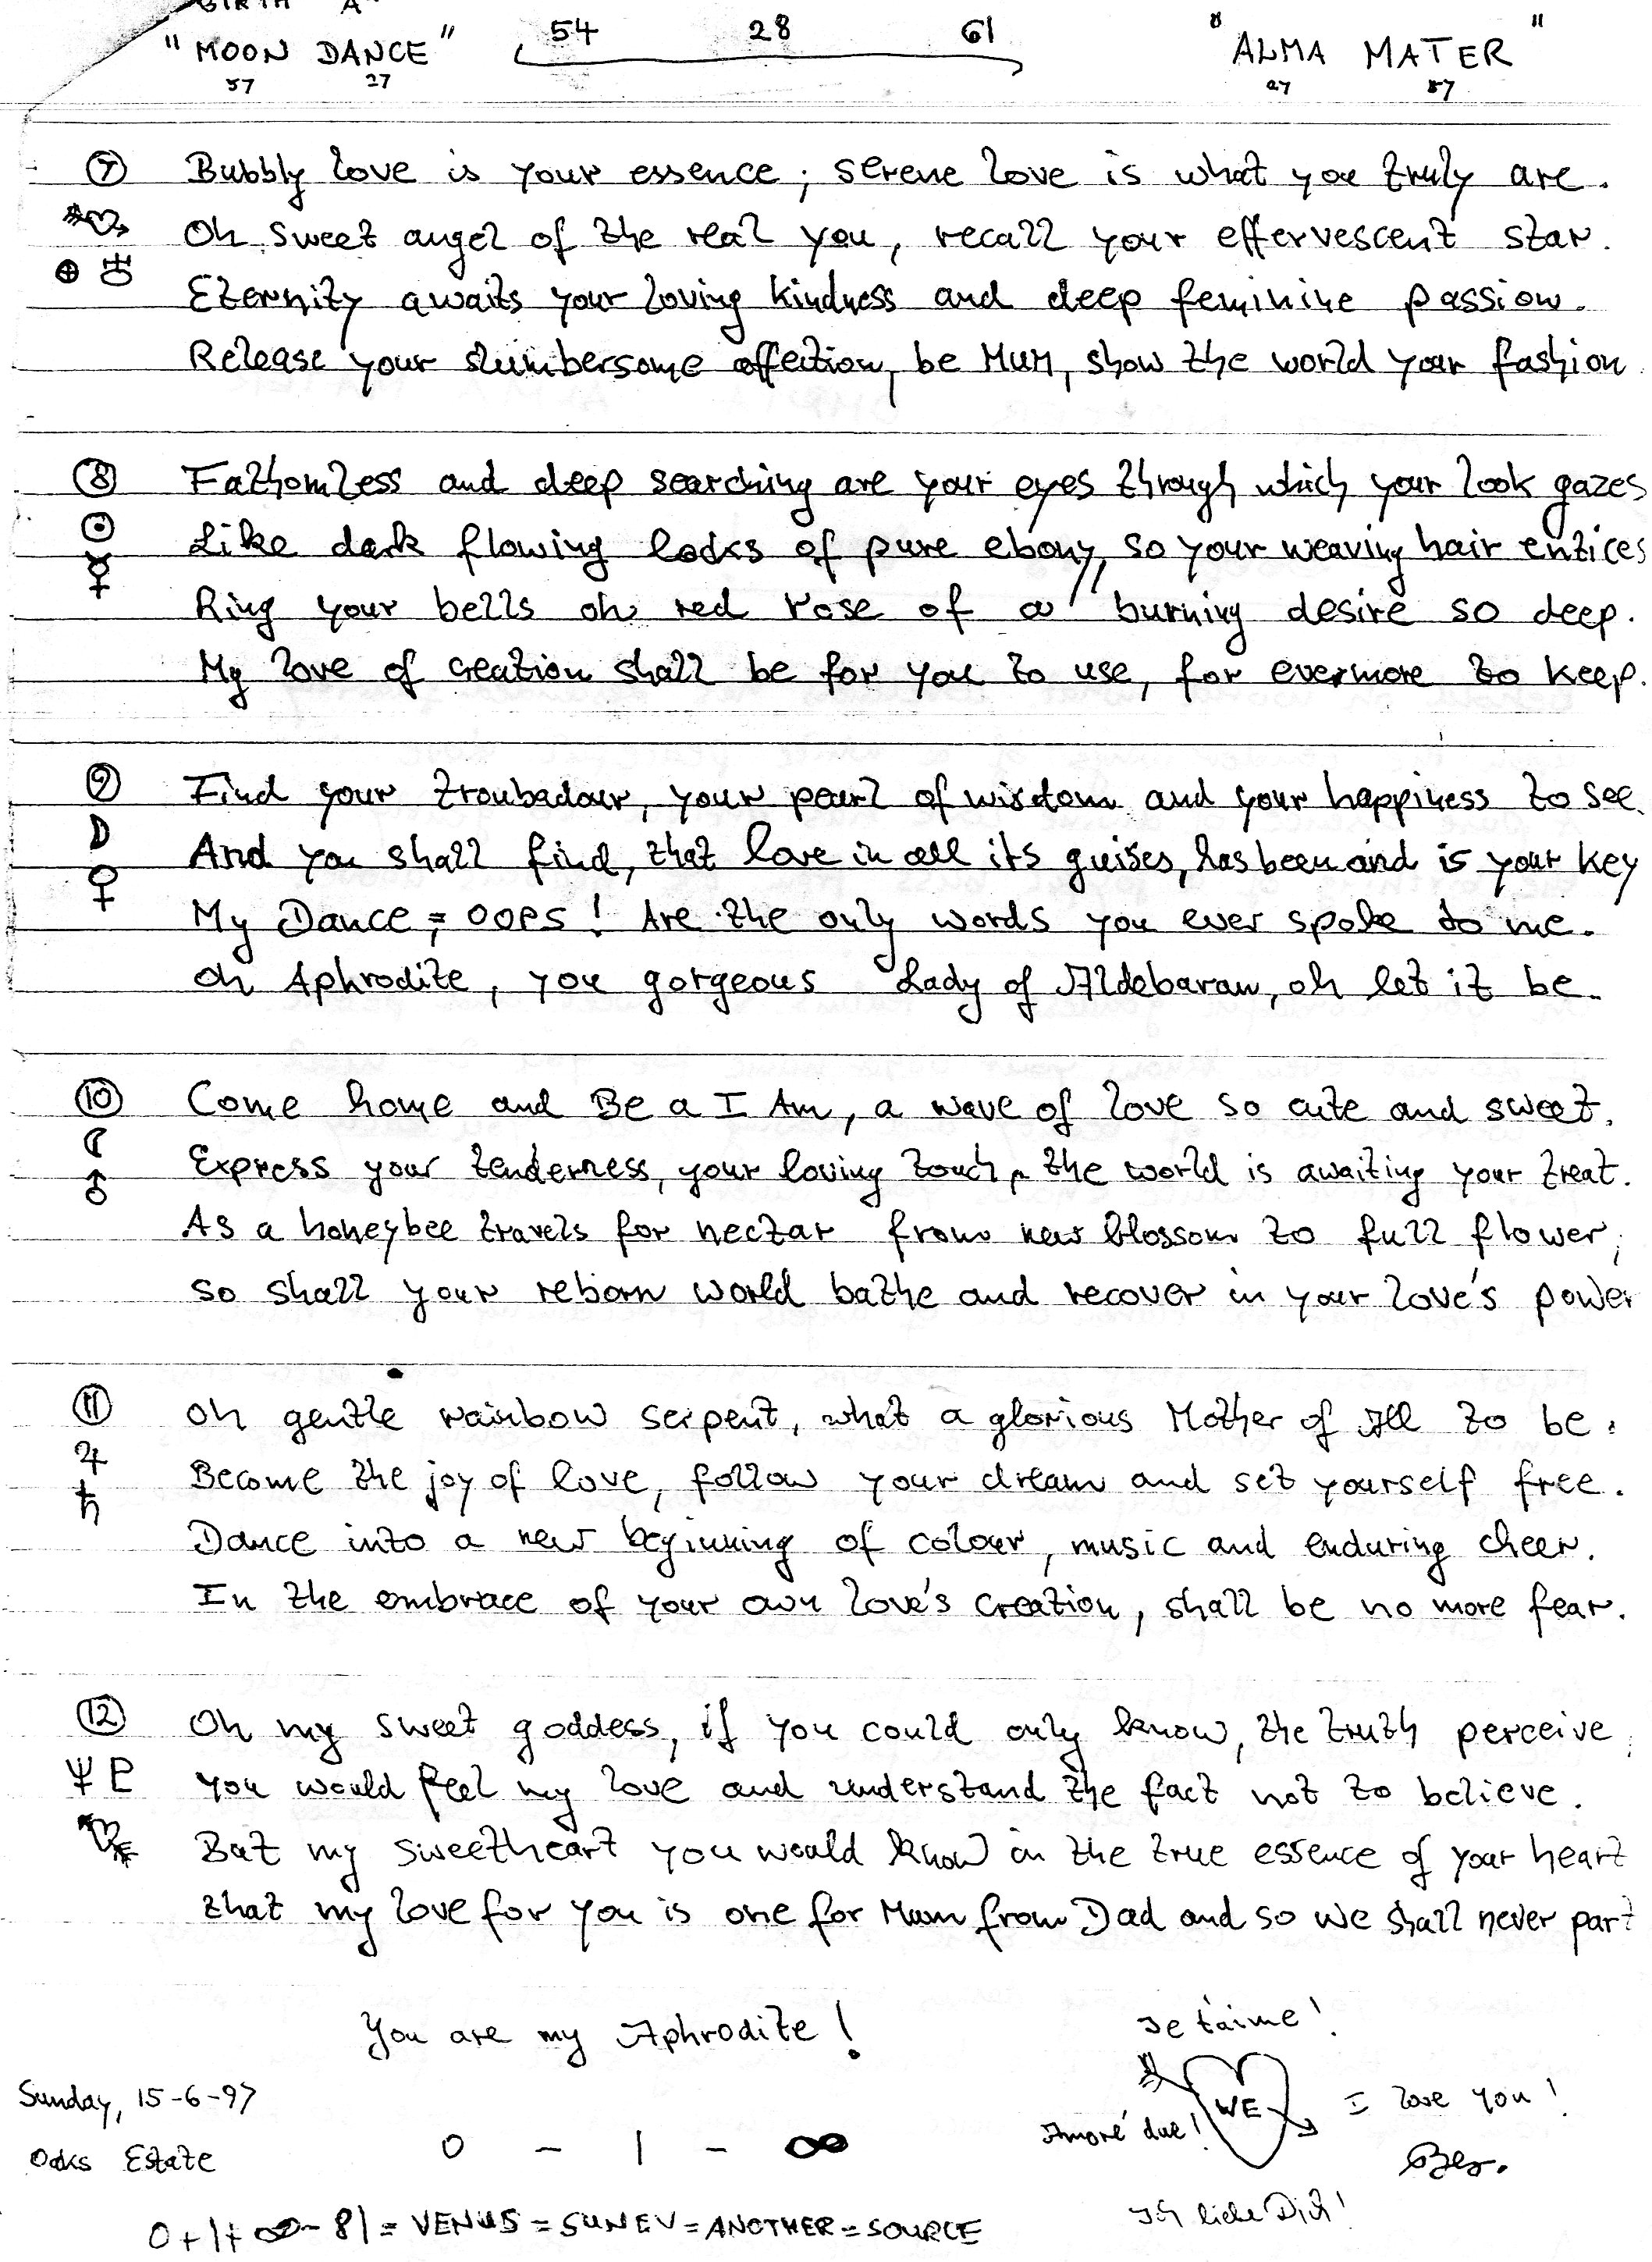 "MOON DANCE" 54 28 61 "ALMA MATER"
57 27 27 57
⑦ Bubbly love is your essence; serene love is what you truly are.
Oh sweet angel of the real you, recall your effervescent star.
Eternity awaits your loving kindness and deep feminine passion.
Release your slumbersome affection, be MUM, show the world your fashion
⑧ Fathomless and deep searching are your eyes through which your look gazes
☉ Like dark flowing locks of pure ebony, so your weaving hair entices
☿ Ring your bells oh red rose of a burning desire so deep.
My love of creation shall be for you to use, for evermore to keep.
⑨ Find your troubadour, your pearl of wisdom and your happiness to see
And you shall find, that love in all its guises, has been and is your key
♀ My Dance = OOPS! Are the only words you ever spoke to me.
Oh Aphrodite, you gorgeous Lady of Aldebaran, oh let it be.
⑩ Come home and Be a I Am, a wave of love so cute and sweet.
Express your tenderness, your loving touch, the world is awaiting your treat.
As a honeybee travels for nectar from new blossom to full flower;
so shall your reborn world bathe and recover in your love's power
⑪ Oh gentle rainbow serpent, what a glorious Mother of All to be.
♃ Become the joy of love, follow your dream and set yourself free.
♄ Dance into a new beginning of colour, music and enduring cheer.
In the embrace of your own love's creation, shall be no more fear.
⑫ Oh my sweet goddess, if you could only know, the truth perceive;
♆ ♇ you would feel my love and understand the fact not to believe.
But my sweetheart you would know in the true essence of your heart
that my love for you is one for Mum from Dad and so we shall never part
You are my Aphrodite!
Je t'aime!
Sunday, 15-6-97
WE
I love you!
Amoré due!
Oaks Estate
0 - 1 - ∞
Ich liebe Dich!
0+1+∞-81=VENUS=SUNEV=ANOTHER=SOURCE